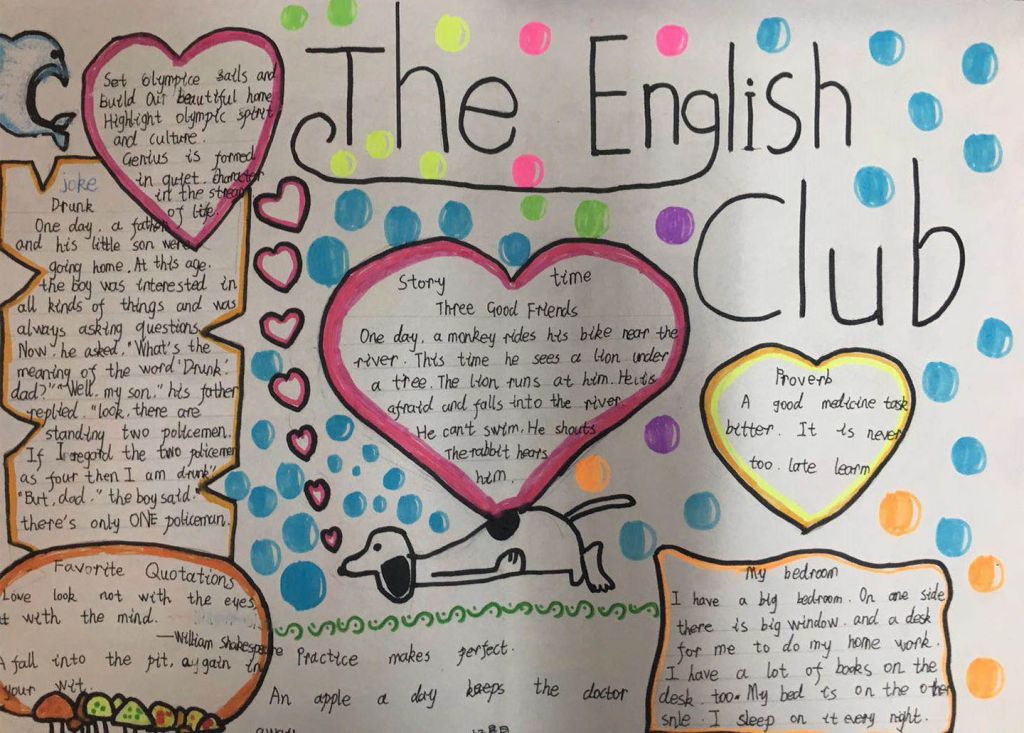 The English
Club
Set Olympice sails and
build Our beautiful home
Highlight olympic spirit
and culture.
Genius is formed
in quiet. character
in the stream
of life.
joke
Drunk
One day, a father
and his little son were
going home. At this age.
the boy was interested in
all kinds of things and was
always asking questions.
Now. he asked, "What's the
meaning of the word 'Drunk'.
dad?" "Well, my son," his father
replied. "look, there are
standing two policemen.
If I regard the two policemen
as four then I am drunk".
"But, dad." the boy said."
there's only ONE policeman.
Story time
Three Good Friends
One day, a monkey rides his bike near the
river. This time he sees a lion under
a tree. The lion runs at him. He is
afraid and falls into the river.
He can't swim. He shouts
The rabbit hears
him.
Proverb
A good medicine task
bitter. It is never
too late learn
Favorite Quotations
Love look not with the eyes,
t with the mind.
—William Shakespeare
A fall into the pit, a gain in
your wit.
Practice makes perfect.
An apple a day keeps the doctor
away
My bedroom
I have a big bedroom. On one side
there is big window. and a desk
for me to do my home work.
I have a lot of books on the
desk. too. My bed is on the other
snle. I sleep on it every night.